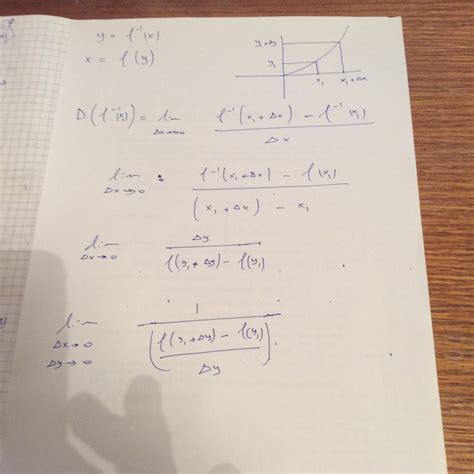 y = f⁻¹(x)
x = f(y)
y₁+Δy
y₁
x₁ x₁+Δx
D(f⁻¹(x)) = lim Δx→0 (f⁻¹(x₁+Δx) − f⁻¹(x₁)) / Δx
lim Δx→0 : (f⁻¹(x₁+Δx) − f(x₁)) / ((x₁+Δx) − x₁)
lim Δx→0 Δy / (f(y₁+Δy) − f(y₁))
lim Δx→0 Δy→0 1 / ((f(y₁+Δy) − f(y₁)) / Δy).